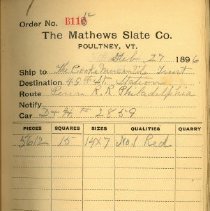 Order No. B116
The Mathews Slate Co.
POULTNEY, VT.
Feb 27 1896
Ship to The Cooks Trust
Destination 45th St. Station
Route Penn R. R. Philadelphia
Notify
Car
PIECES SQUARES SIZES QUALITIES QUARRY
5612 15 14x7 No. 1 Red